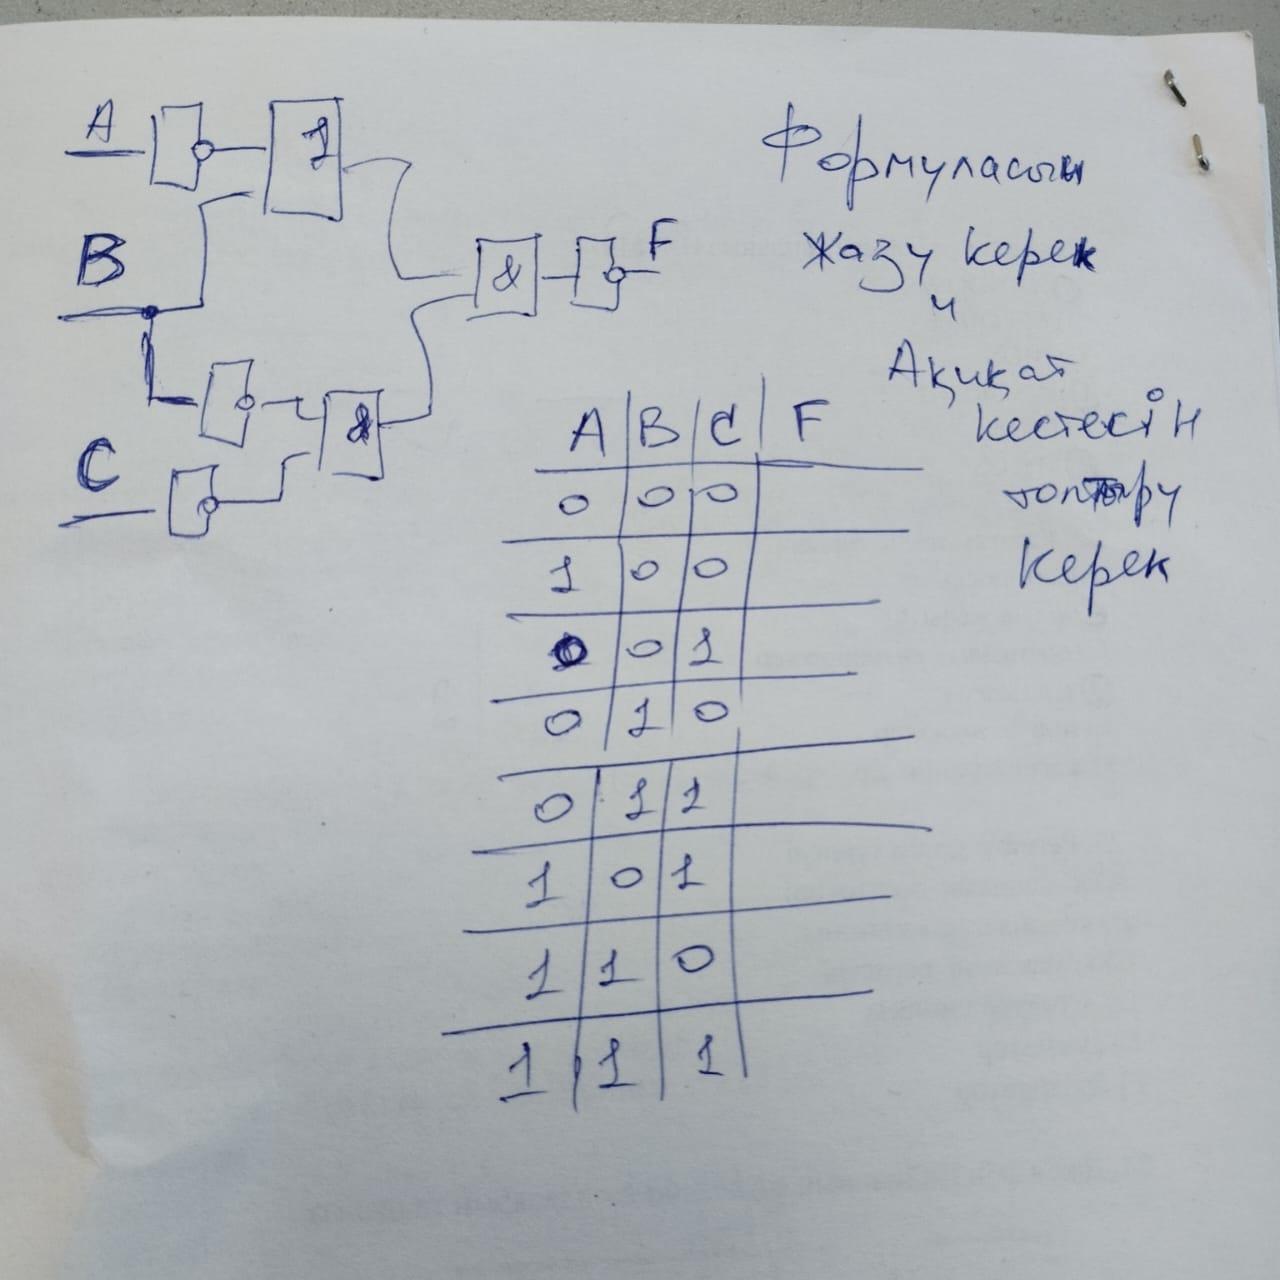 A
1
Формуласын
B
F
жазу керек
&
и
Ақиқат
кестесін
C
&
толтыру
керек
A B C F
0 0 0
1 0 0
0 0 1
0 1 0
0 1 1
1 0 1
1 1 0
1 1 1